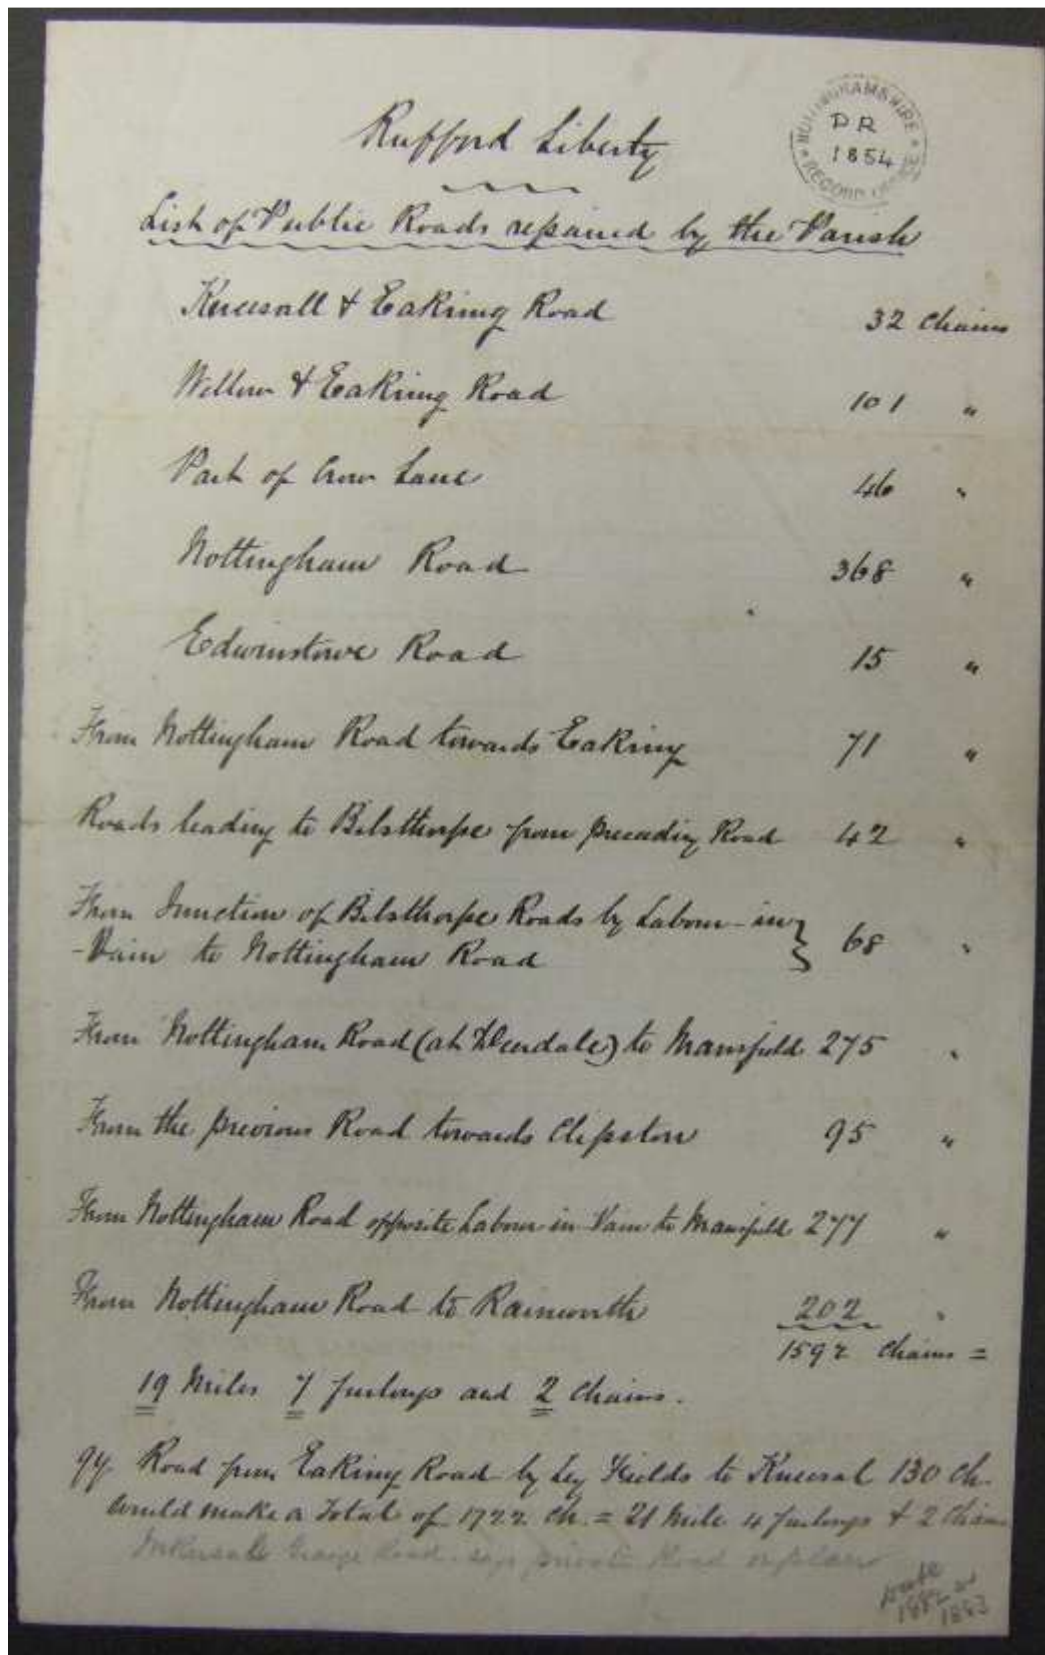 Rufford Liberty
NOTTINGHAMSHIRE RECORD OFFICE
PR
1854
List of Public Roads repaired by the Parish
Kneesall & Eakring Road 32 Chains
Wellow & Eakring Road 101 "
Part of Crow Lane 46 "
Nottingham Road 368 "
Edwinstowe Road 15 "
From Nottingham Road towards Eakring 71 "
Roads leading to Bilsthorpe from preceding Road 42 "
From Junction of Bilsthorpe Roads by Labour-in
-Vain to Nottingham Road } 68 "
From Nottingham Road (at Deerdale) to Mansfield 275 "
From the previous Road towards Clipston 95 "
From Nottingham Road opposite Labour in Vain to Mansfield 277 "
From Nottingham Road to Rainworth 202 "
1592 Chains =
19 Miles 7 furlongs and 2 Chains.
qy. Road from Eakring Road by Ley Fields to Kneesal 130 Ch.
would make a Total of 1722 Ch. = 21 Mile 4 furlongs & 2 Chains
Inkersall Grange Road says private Road on plan
Date
1882 or
1883